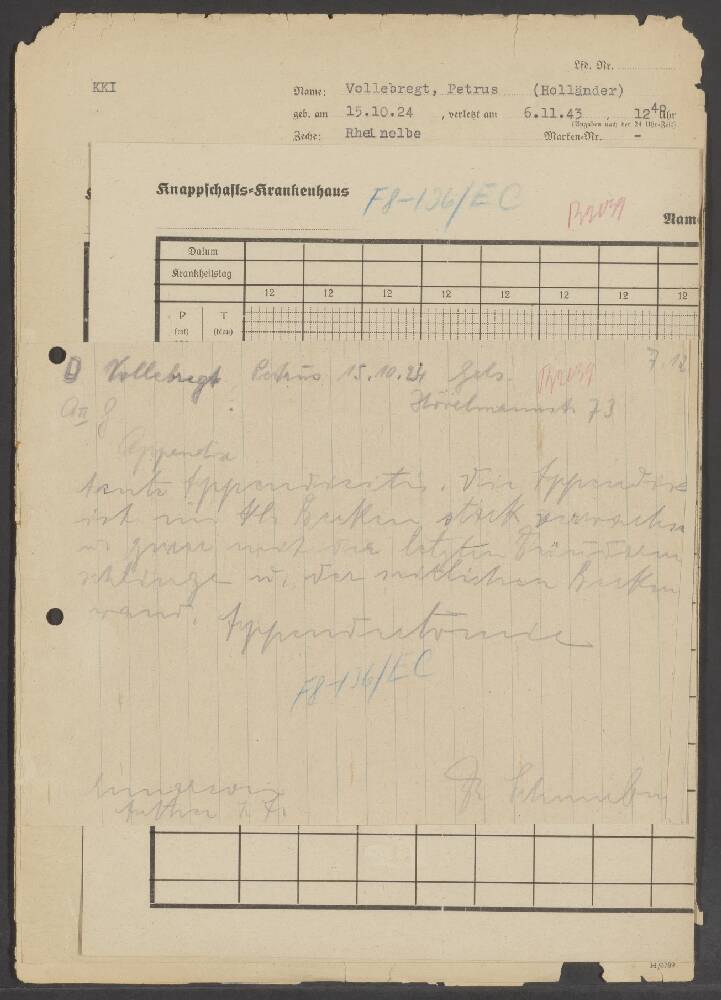 Lfd. Nr.
KKI
Name: Vollebregt, Petrus (Holländer)
geb. am 15.10.24, verletzt am 6.11.43, 12 40 Uhr
(Angaben nach der 24 Uhr-Zeit)
Zeche: Rheinelbe Marken-Nr. -
Knappschafts-Krankenhaus F8-136/EC
Nam
Datum
Krankheitstag
12 12 12 12 12 12 12 12
P T
(rot) (blau)
Vollebregt Petrus 15.10.24 Gels. 7.12
73
Appendix
Akute Appendicitis. Die Appendix
ist im kl. Becken stark verwachsen
u. zwar mit der letzten Dünndarm
schlinge u. der seitlichen Becken
wand. Appendectomie
F8-136/EC
Dr.